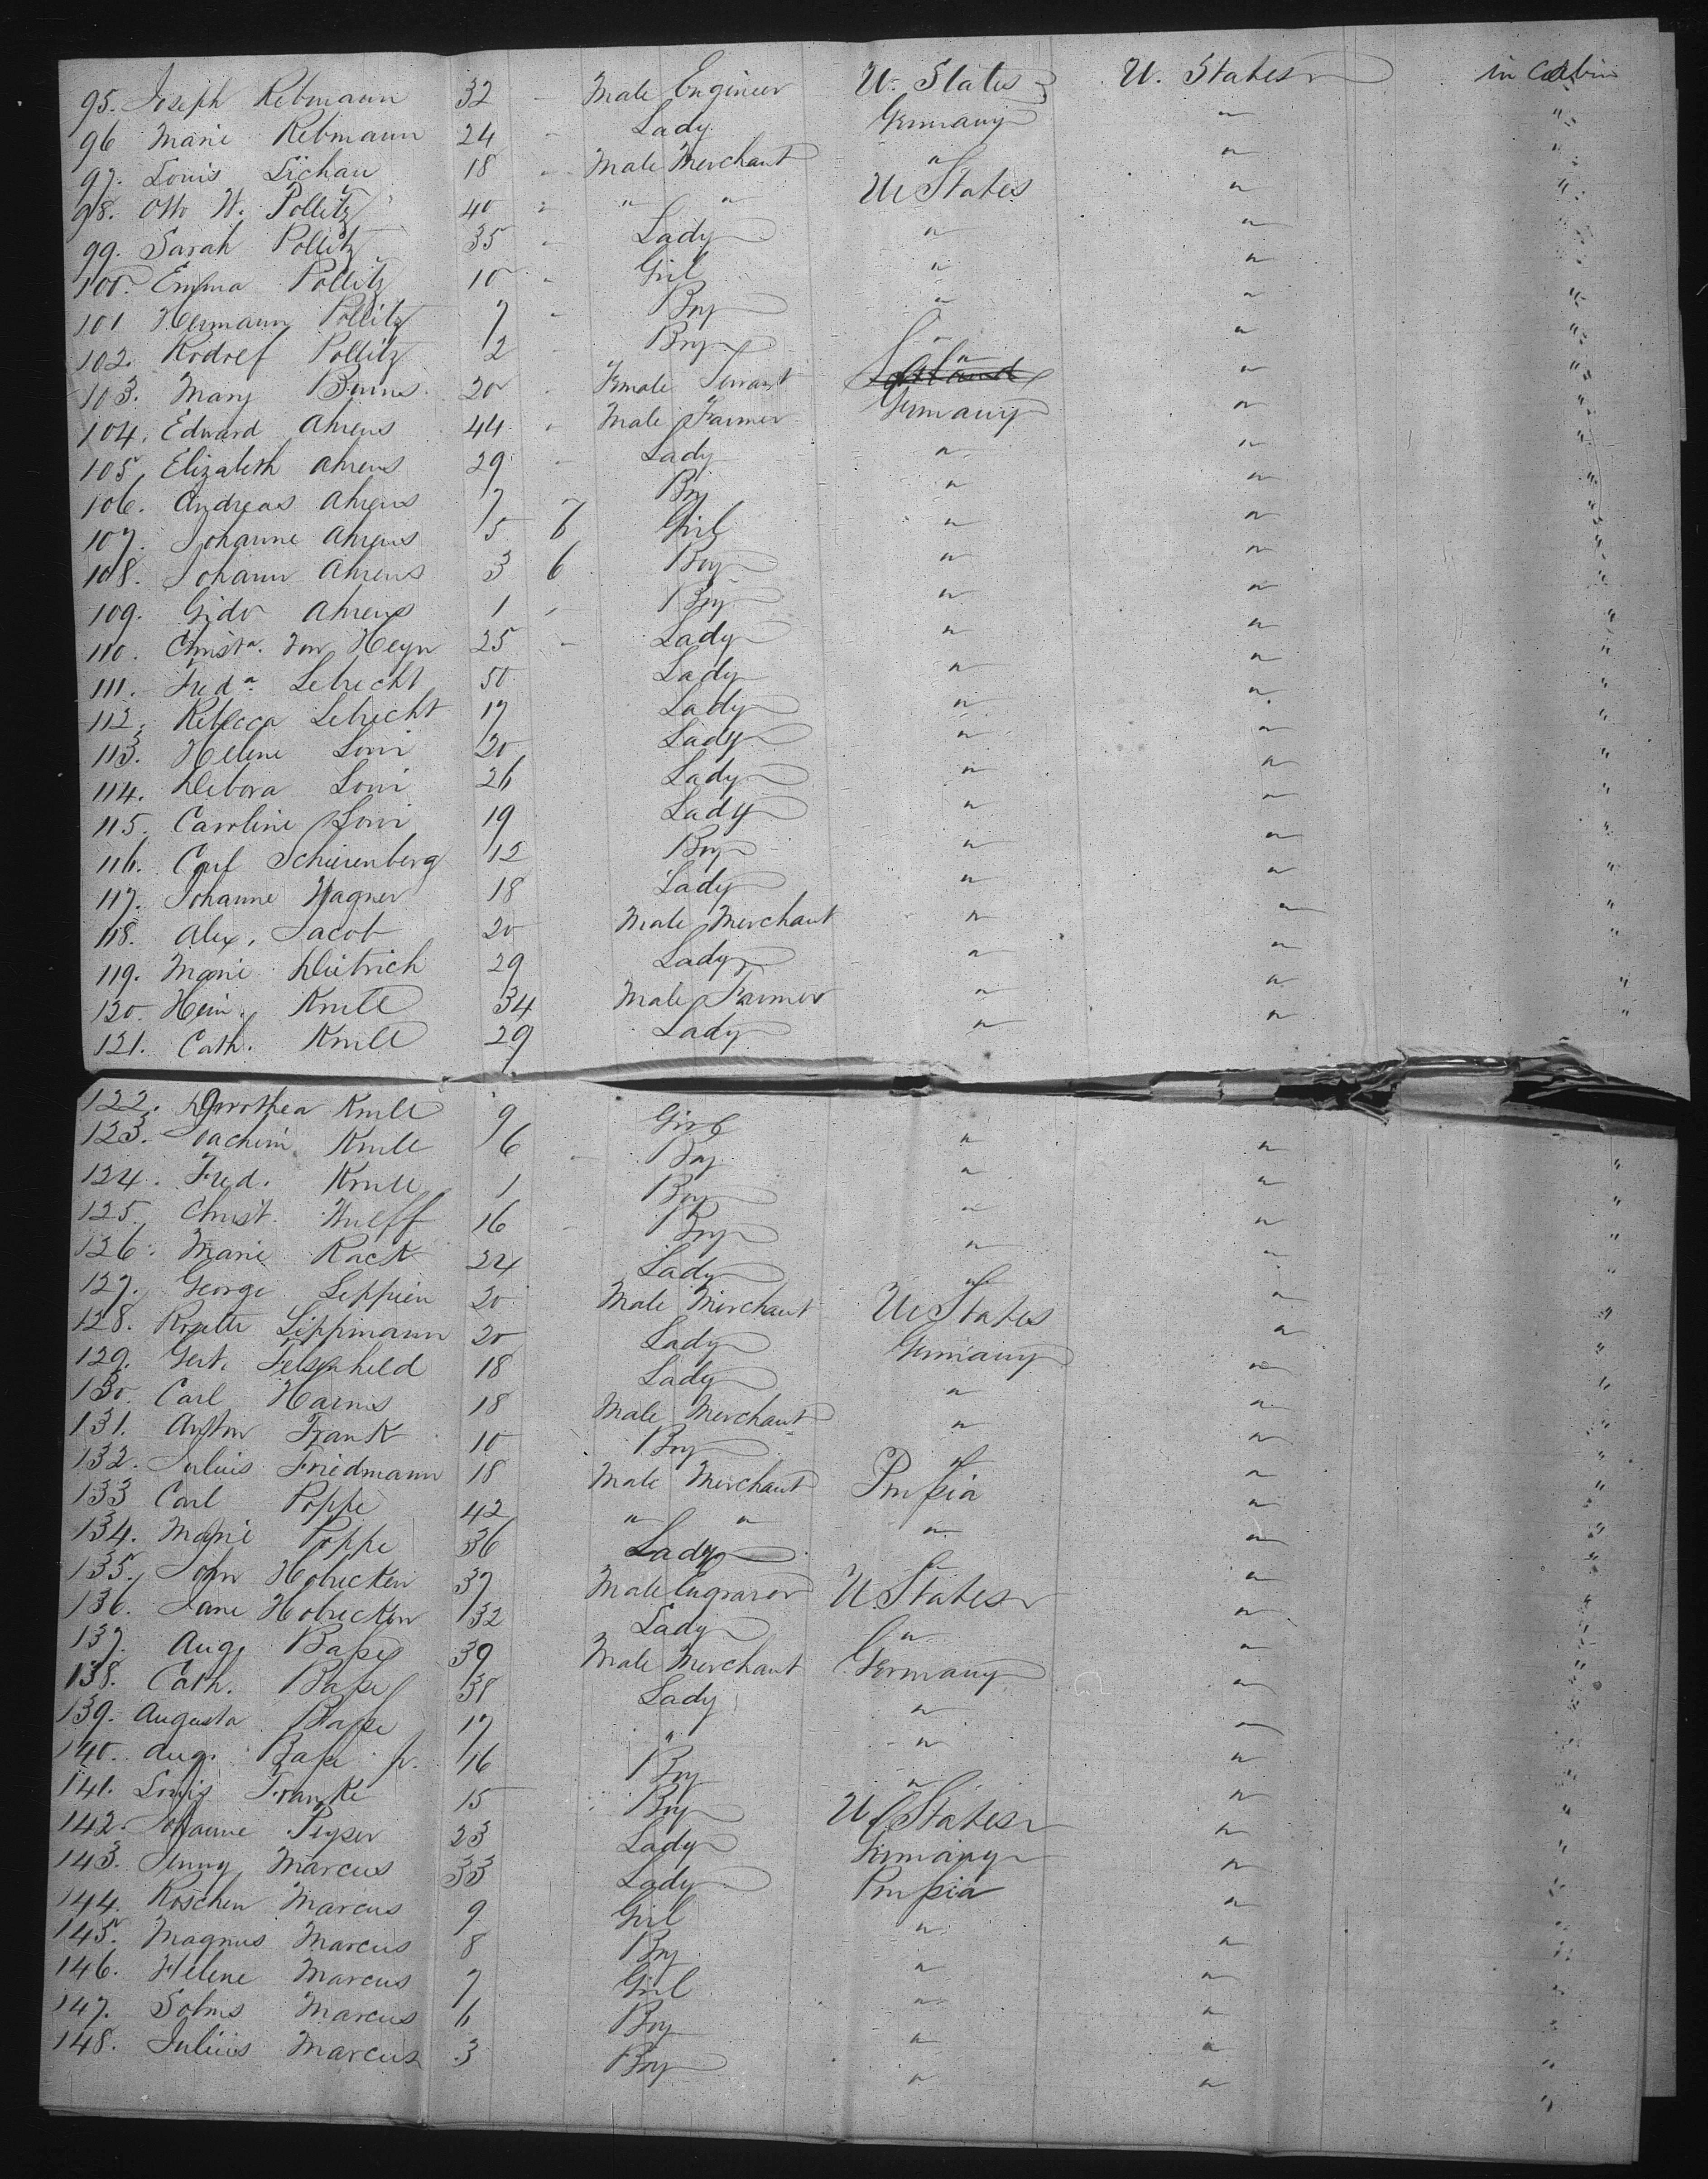 95. Joseph Rebmann 32 - Male Engineer U. States U. States in Cabin
96 Marie Rebmann 24 - Lady Germany " "
97. Louis Lichau 18 - Male Merchant " " "
98. Otto W. Pollitz 40 " " " U. States " "
99. Sarah Pollitz 35 - Lady " " "
100. Emma Pollitz 10 - Girl " " "
101 Hermann Pollitz 7 - Boy " " "
102. Rodolf Pollitz 2 - Boy " " "
103. Mary Burns 20 - Female Servant " " "
104. Edward Ahrens 44 " Male Farmer Germany " "
105. Elizabeth Ahrens 29 - Lady " " "
106. Andreas Ahrens 7 - Boy " " "
107. Johanne Ahrens 5 6 Girl " " "
108. Johann Ahrens 3 6 Boy " " "
109. Gido Ahrens 1 - Boy " " "
110. Christa. von Heyn 25 - Lady " " "
111. Freda. Lebrecht 50 Lady " " "
112. Rebecca Lebrecht 17 Lady " " "
113. Helene Loni 20 Lady " " "
114. Debora Loni 26 Lady " " "
115. Caroline Loni 19 Lady " " "
116. Carl Schierenberg 12 Boy " " "
117. Johanne Wagner 18 Lady " " "
118. Alex. Jacob 20 Male Merchant " " "
119. Marie Dietrich 29 Lady " " "
120. Hein. Krull 34 Male Farmer " " "
121. Cath. Krull 29 Lady " "
122. Dorothea Krull 9 Girl
123. Joachim Krull 6 - Boy " " "
124. Fred. Krull 1 Boy " " "
125. Christ. Wulff 16 - Boy " " "
126. Marie Rack 24 Lady " " "
127. George Leppien 20 Male Merchant U. States " "
128. Rosette Lippmann 20 Lady Germany " "
129. Gert. Felsenheld 18 Lady " " "
130. Carl Harms 18 Male Merchant " " "
131. Anton Frank 10 Boy " " "
132. Julius Friedmann 18 Male Merchant Prussia " "
133 Carl Poppe 42 " " " " "
134. Marie Poppe 36 Lady " " "
135. John Hobrecken 37 Male Engraver U States " "
136. Jane Hobrecken 32 Lady " " "
137. Aug. Basse 39 Male Merchant Germany " "
138. Cath. Basse 38 Lady " " "
139. Augusta Basse 17 " " " "
140. Aug. Basse jr. 16 Boy " " "
141. Louis Franke 15 Boy U. States " "
142. Johanne Peyser 23 Lady Germany " "
143. Jenny Marcus 33 Lady Prussia " "
144. Roschen Marcus 9 Girl " " "
145. Magnus Marcus 8 Boy " " "
146. Helene Marcus 7 Girl " " "
147. Solms Marcus 6 Boy " " "
148. Julius Marcus 3 Boy " " "